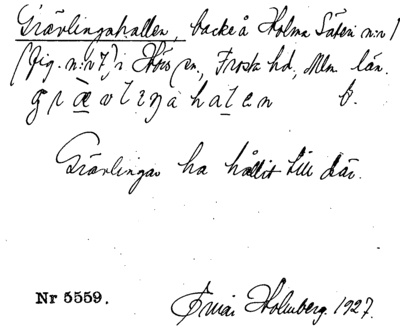 Grävlingahallen, backe å Holma Säteri n:o 1
(fig. n:o 7) i Höörs sn., Frosta hd, Mlm. län.
grævliŋahalen b.
Grävlingar ha hållit till där.
Nr 5559. Holmberg. 1927.